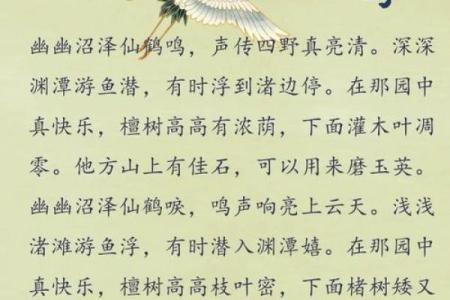 幽幽沼泽仙鹤鸣，声传四野真亮清。深深
渊潭游鱼潜，有时浮到渚边停。在那园中
真快乐，檀树高高有浓荫，下面灌木叶凋
零。他方山上有佳石，可以用来磨玉英。
幽幽沼泽仙鹤唳，鸣声响亮上云天。浅浅
渚滩游鱼浮，有时潜入渊潭嬉。在那园中
真快乐，檀树高高枝叶密，下面楮树矮又